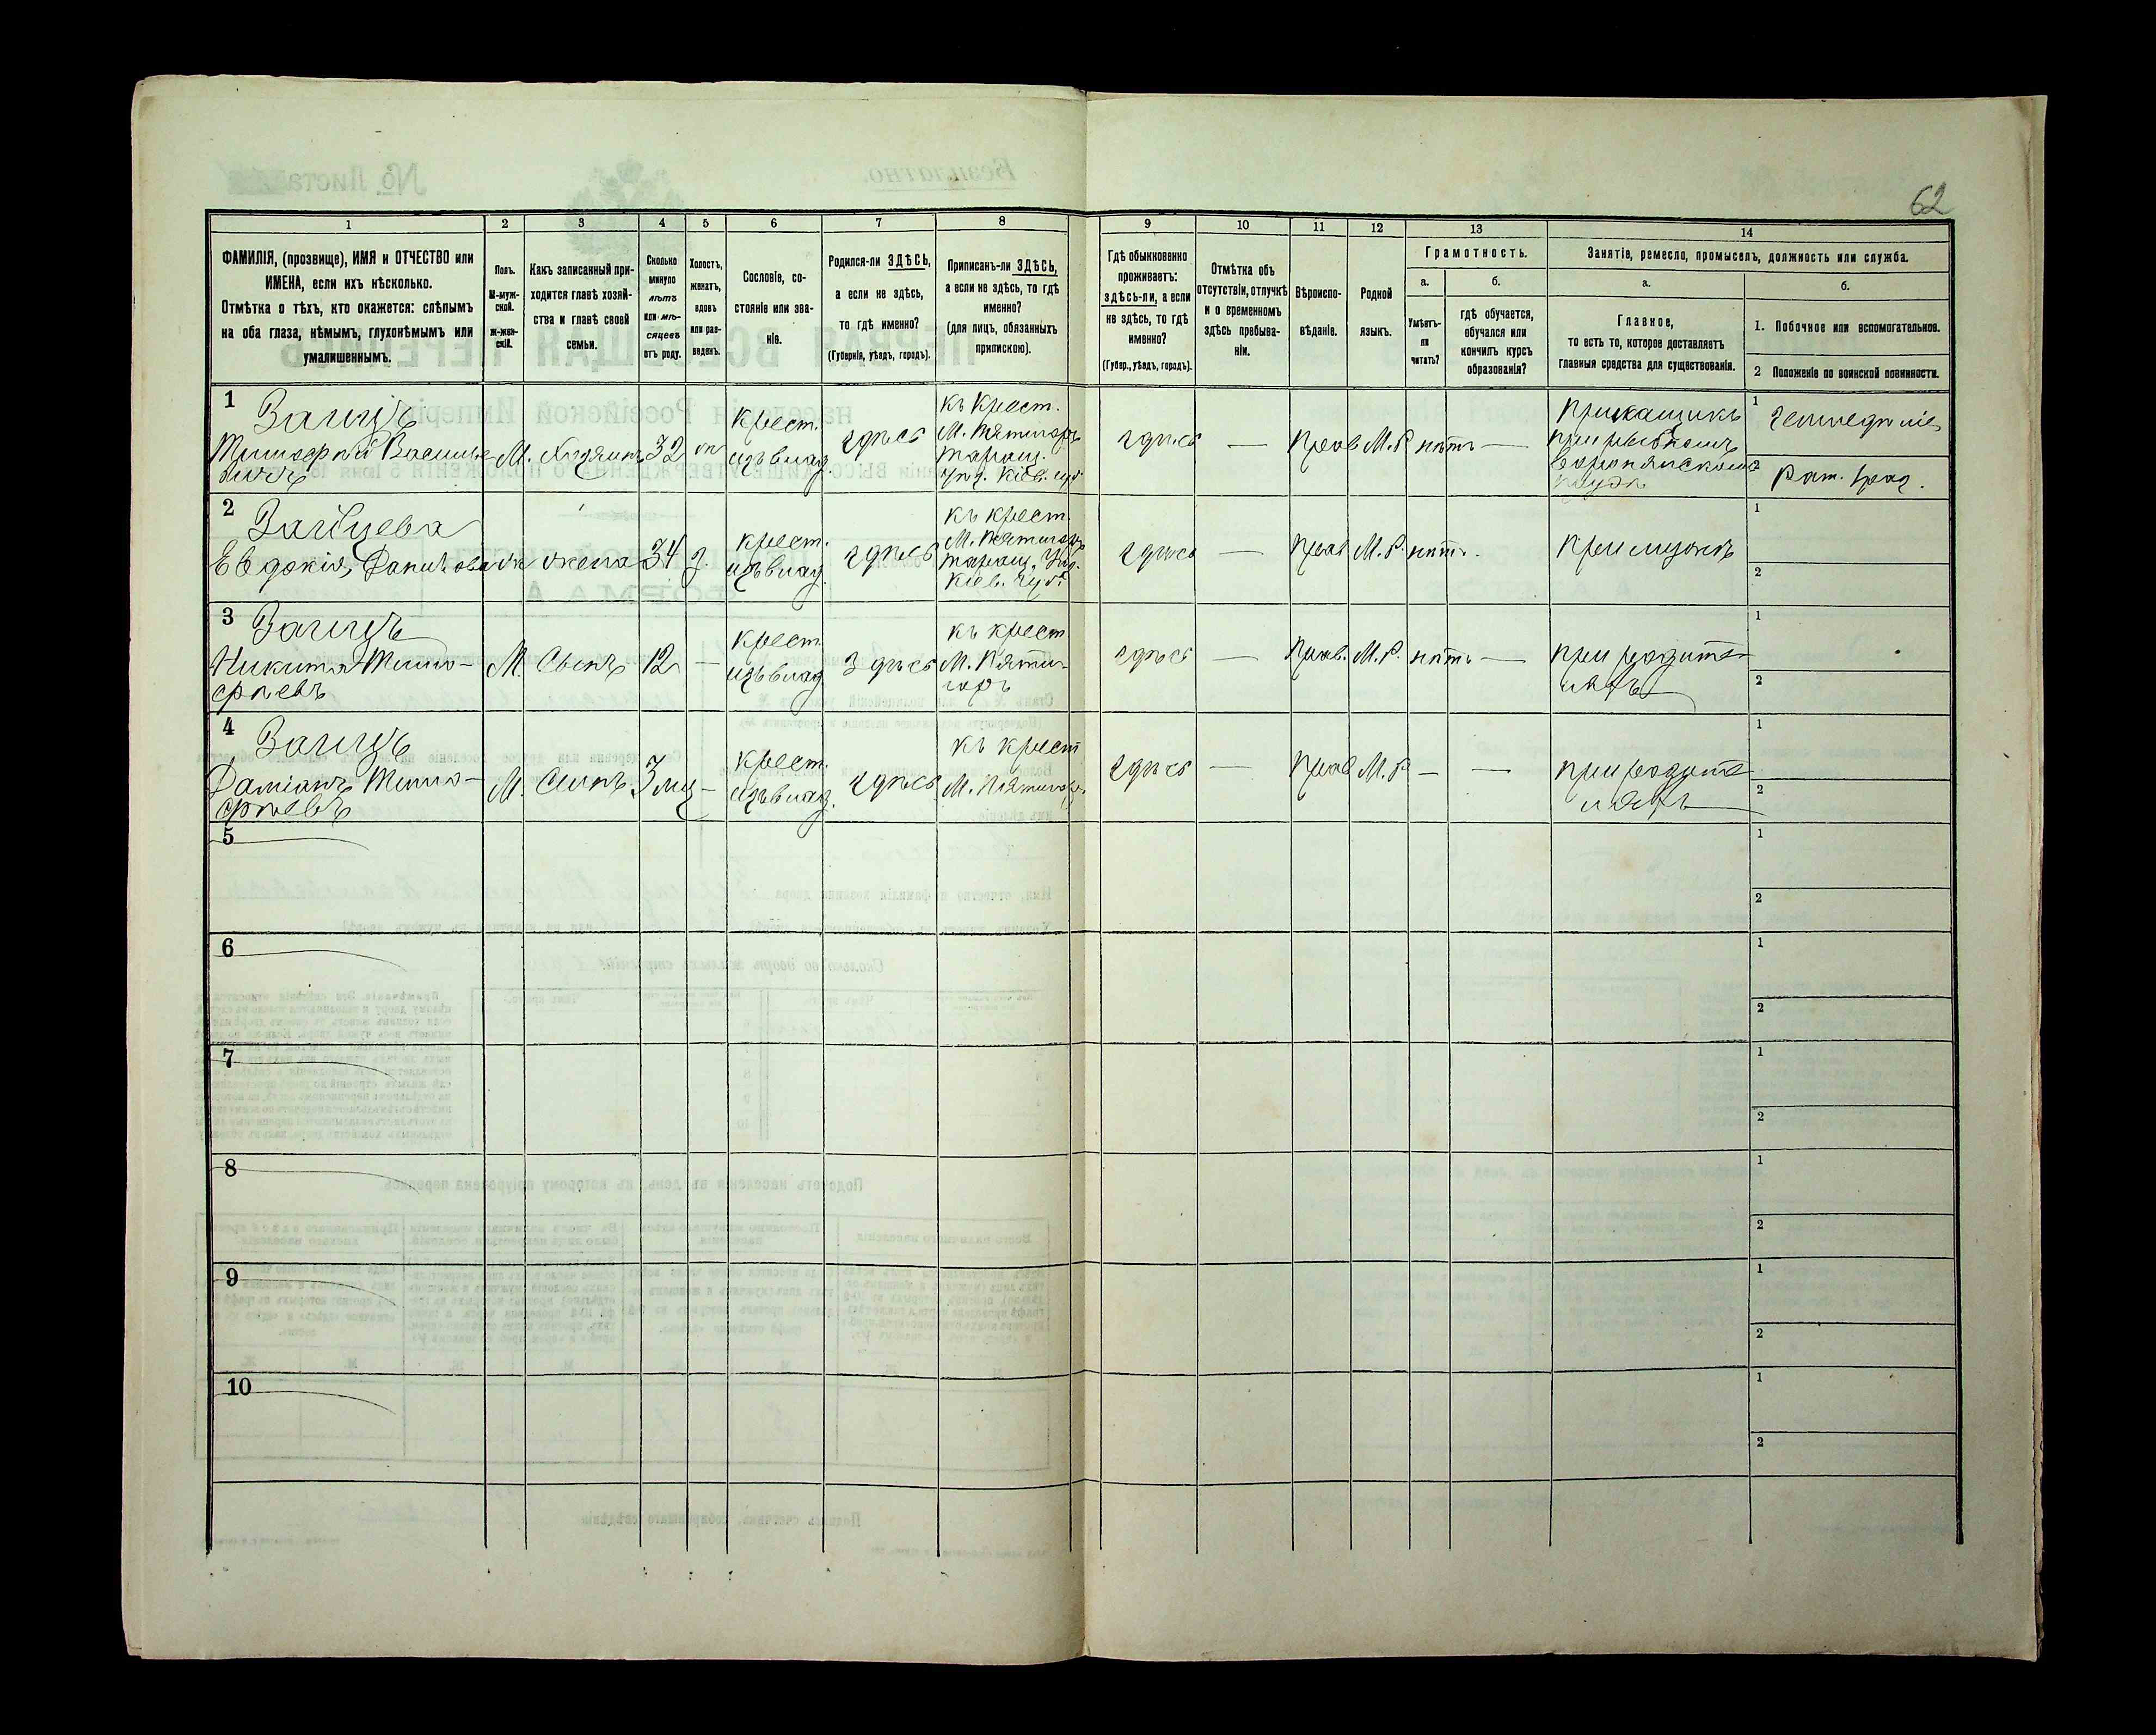 62
1
2
3
4
5
6
7
8
9
10
11
12
13
14
ФАМИЛІЯ, (прозвище), ИМЯ и ОТЧЕСТВО или
ИМЕНА, если ихъ нѣсколько.
Отмѣтка о тѣхъ, кто окажется: слѣпымъ
на оба глаза, нѣмымъ, глухонѣмымъ или
умалишеннымъ.
Полъ.
М-муж-
ской.
Ж-жен-
скій.
Какъ записанный при-
ходится главѣ хозяй-
ства и главѣ своей
семьи.
Сколько
минуло
лѣтъ
или мѣ-
сяцевъ
отъ роду.
Холостъ,
женатъ,
вдовъ
или раз-
веденъ.
Сословіе, со-
стояніе или зва-
ніе.
Родился-ли ЗДѢСЬ,
а если не здѣсь,
то гдѣ именно?
(Губернія, уѣздъ, городъ).
Приписанъ-ли ЗДѢСЬ,
а если не здѣсь, то гдѣ
именно?
(для лицъ, обязанныхъ
припискою).
Гдѣ обыкновенно
проживаетъ:
здѣсь-ли, а если
не здѣсь, то гдѣ
именно?
(Губер., уѣздъ, городъ).
Отмѣтка объ
отсутствіи, отлучкѣ
и о временномъ
здѣсь пребыва-
ніи.
Вѣроиспо-
вѣданіе.
Родной
языкъ.
Грамотность.
а.
Умѣетъ-
ли
читать?
б.
гдѣ обучается,
обучался или
кончилъ курсъ
образованія?
Занятіе, ремесло, промыселъ, должность или служба.
а.
Главное,
то есть то, которое доставляетъ
главныя средства для существованія.
б.
1. Побочное или вспомогательное.
2 Положеніе по воинской повинности.
1 Заицъ
Тимофѣй Василье
вичъ
М. Хозяинъ 32 ж
крест.
изъ влад.
здѣсь
къ крест.
М. Пятигоръ
Таращ.
уѣз. Кіев. губ.
здѣсь — Прав М.Р. нѣтъ —
Прикащикъ
при
1 Земледѣліе,
2 Рат. 1 раз.
2 Зайцева
Евдокія Данилова
ж жена 34 з.
крест.
изъ влад.
здѣсь
къ крест.
М. Пятигоръ
Таращ. Уѣз.
Кіев. губ.
здѣсь — Прав М.Р. нѣтъ.
При мужѣ
1
2
3 Заицъ
Никита Тимо-
фѣевъ
М. Сынъ 12 —
крест.
изъ влад
здѣсь
къ крест
М. Пяти-
горъ
здѣсь — Прав. М.Р. нѣтъ —
при родите-
ляхъ
1
2
4 Заицъ
Даміанъ Тимо-
фѣевъ
М. Сынъ 3 мц —
крест.
изъ влад.
здѣсь
къ крест
М. Пятигоръ
здѣсь — Прав М.Р — —
при родите
ляхъ
1
2
5
1
2
6
1
2
7
1
2
8
1
2
9
1
2
10
1
2